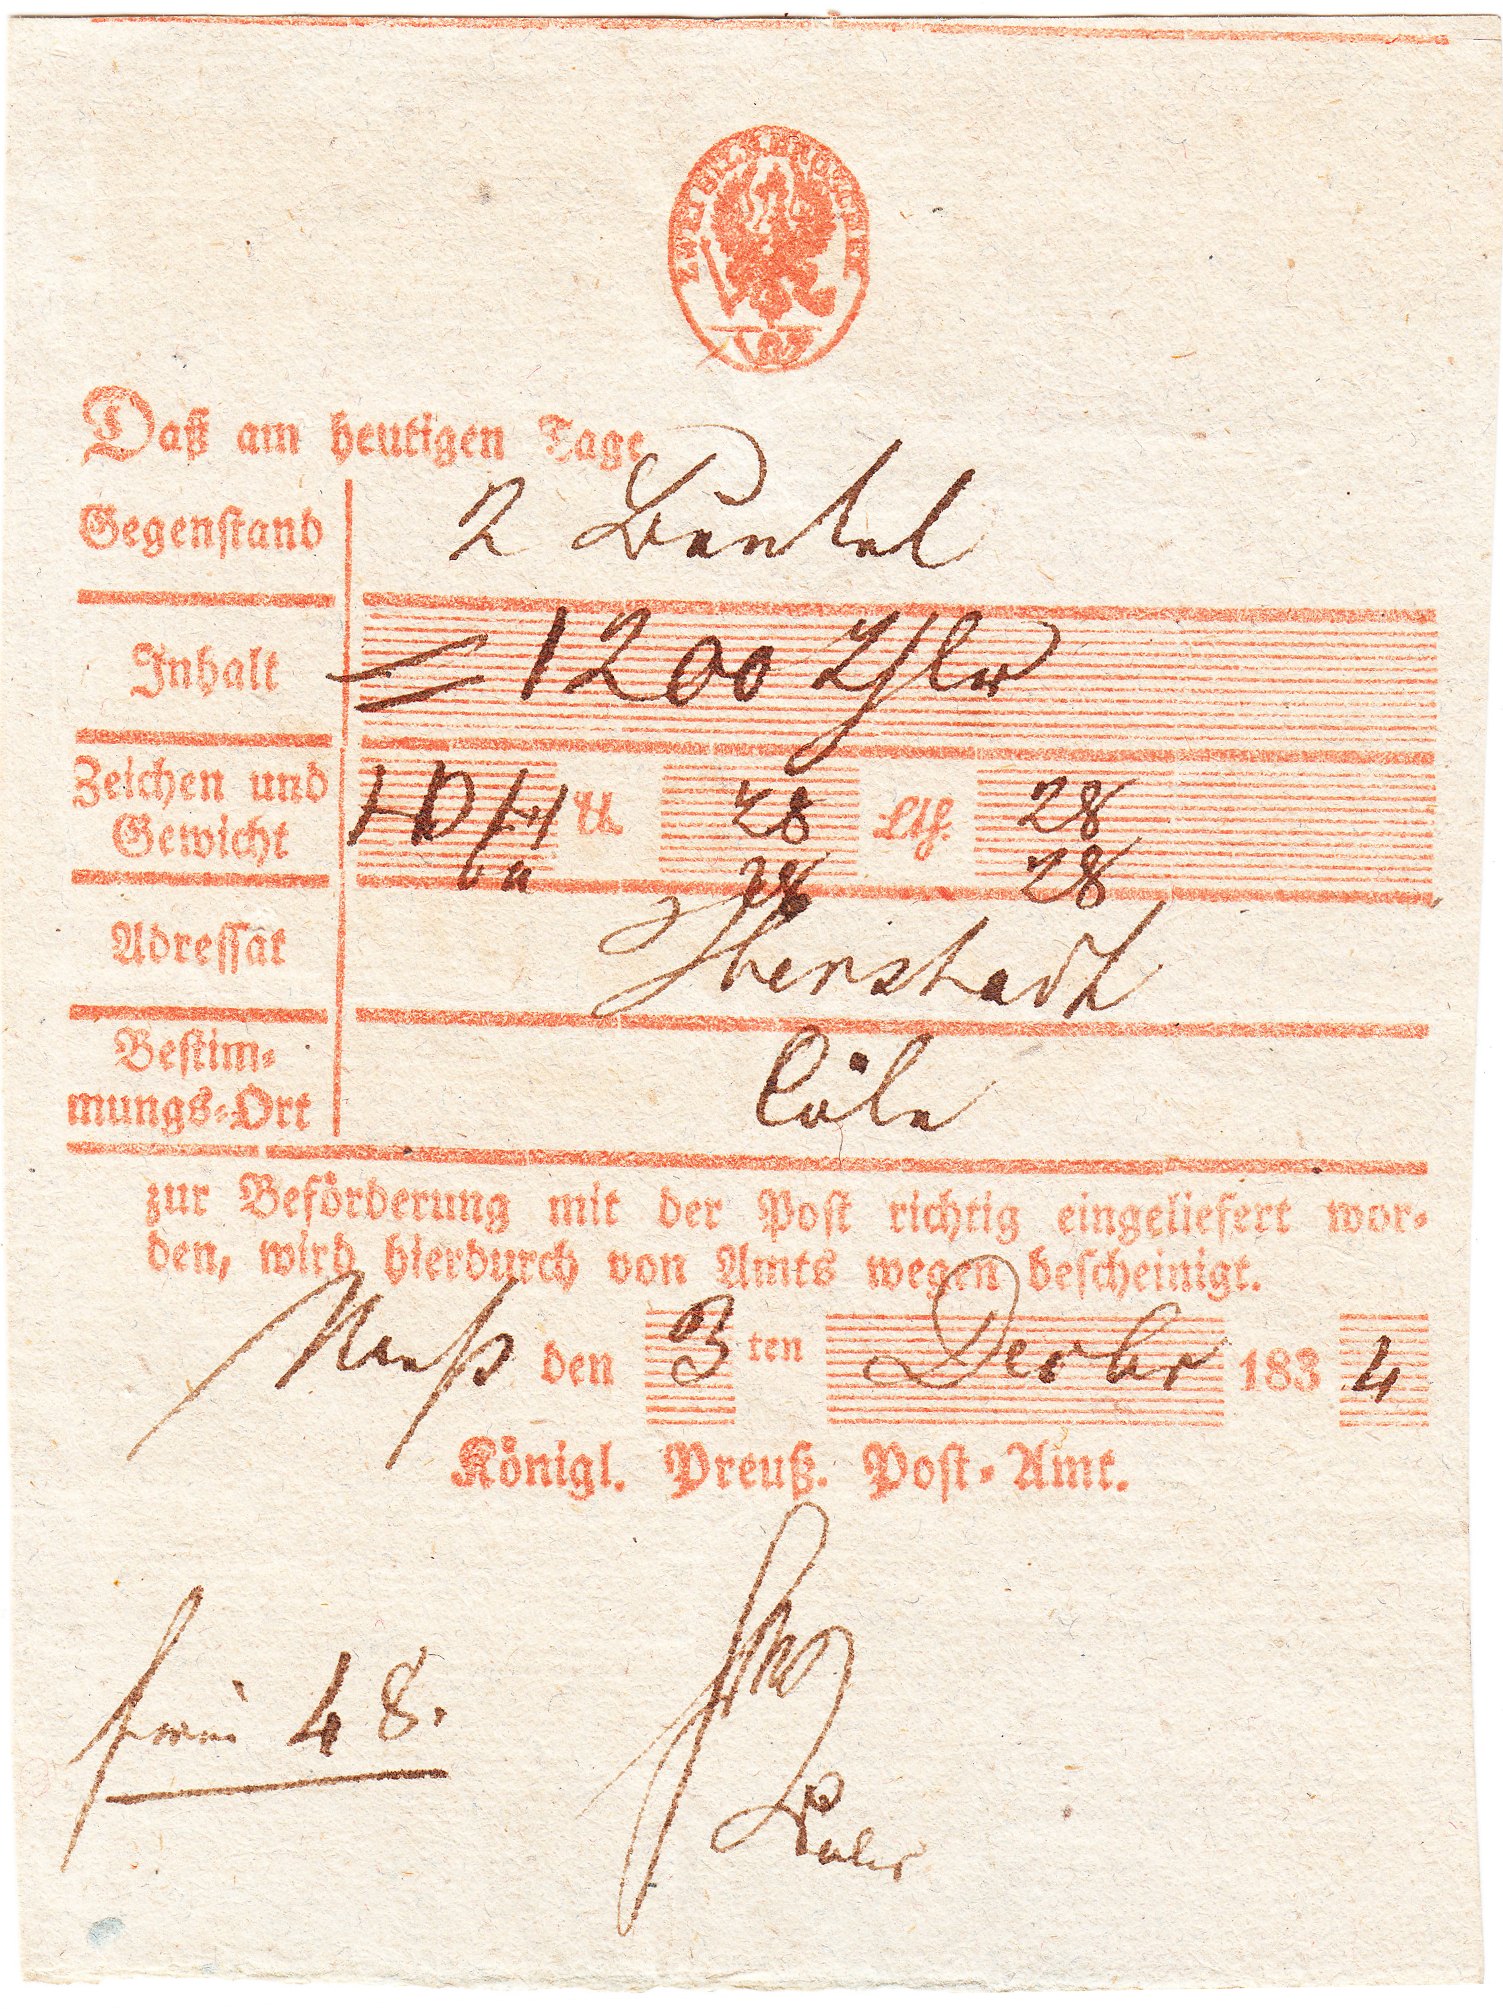 Daß am heutigen Tage
Gegenstand 2 Beutel
Inhalt = 1200 Thlr
Zeichen und
Gewicht HD 28 Lth. 28
28 28
Adressat
Bestim-
mungs-Ort Cöln
zur Beförderung mit der Post richtig eingeliefert wor-
den, wird hierdurch von Amts wegen bescheinigt.
Neuß den 3 ten Decbr 183 4
Königl. Preuß. Post-Amt.
frei 48.